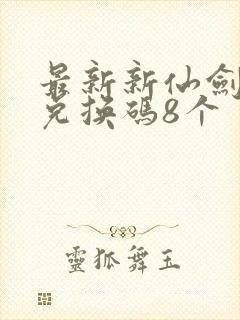 最新新仙劍
兌換碼8个
靈狐舞玉